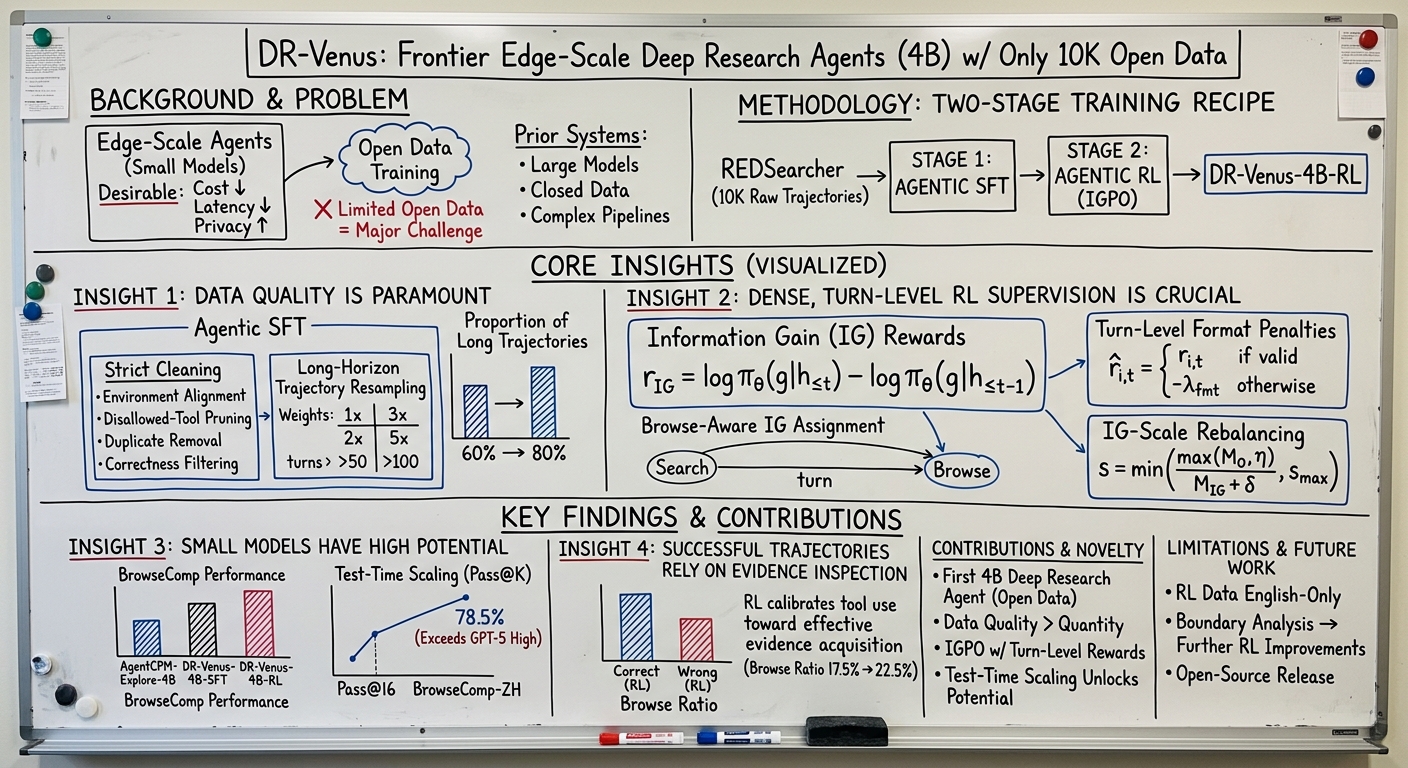 DR-Venus: Frontier Edge-Scale Deep Research Agents (4B) w/ Only 10K Open Data
BACKGROUND & PROBLEM
Edge-Scale Agents
(Small Models)
Desirable: Cost ↓
Latency ↓
Privacy ↑
Open Data
Training
✗ Limited Open Data
= Major Challenge
Prior Systems:
• Large Models
• Closed Data
• Complex Pipelines
METHODOLOGY: TWO-STAGE TRAINING RECIPE
REDSearcher
(10K Raw Trajectories)
STAGE 1:
AGENTIC SFT
STAGE 2:
AGENTIC RL
(IGPO)
DR-Venus-4B-RL
CORE INSIGHTS (VISUALIZED)
INSIGHT 1: DATA QUALITY IS PARAMOUNT
Agentic SFT
Strict Cleaning
• Environment Alignment
• Disallowed-Tool Pruning
• Duplicate Removal
• Correctness Filtering
Long-Horizon
Trajectory Resampling
Weights: 1x 3x
2x 5x
turns> >50 >100
Proportion of
Long Trajectories
60% → 80%
INSIGHT 2: DENSE, TURN-LEVEL RL SUPERVISION IS CRUCIAL
Information Gain (IG) Rewards
r_IG = log π_θ(g|h_≤t) − log π_θ(g|h_≤t−1)
Browse-Aware IG Assignment
Search
turn
Browse
Turn-Level Format Penalties
r̂_i,t = { r_i,t if valid
−λ_fmt otherwise
IG-Scale Rebalancing
s = min(max(M_O, η) / M_IG + δ, s_max)
KEY FINDINGS & CONTRIBUTIONS
INSIGHT 3: SMALL MODELS HAVE HIGH POTENTIAL
BrowseComp Performance
AgentCPM-
Explore-4B
DR-Venus-
4B-SFT
DR-Venus-
4B-RL
BrowseComp Performance
Test-Time Scaling (Pass@K)
78.5%
(Exceeds GPT-5 High)
Pass@16 BrowseComp-ZH
INSIGHT 4: SUCCESSFUL TRAJECTORIES
RELY ON EVIDENCE INSPECTION
Correct
(RL)
Wrong
(RL)
Browse Ratio
RL calibrates tool use
toward effective
evidence acquisition
(Browse Ratio 17.5% → 22.5%)
CONTRIBUTIONS & NOVELTY
• First 4B Deep Research
Agent (Open Data)
• Data Quality > Quantity
• IGPO w/ Turn-Level Rewards
• Test-Time Scaling Unlocks
Potential
LIMITATIONS & FUTURE
WORK
• RL Data English-Only
• Boundary Analysis →
Further RL Improvements
• Open-Source Release